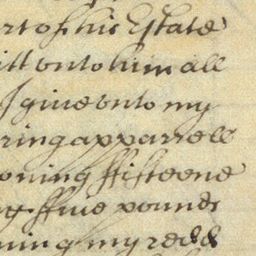 rt of his Estate
itt unto him all
I give unto my
ring apparrell
oning ffifteene
ffive pounds
ning my redd